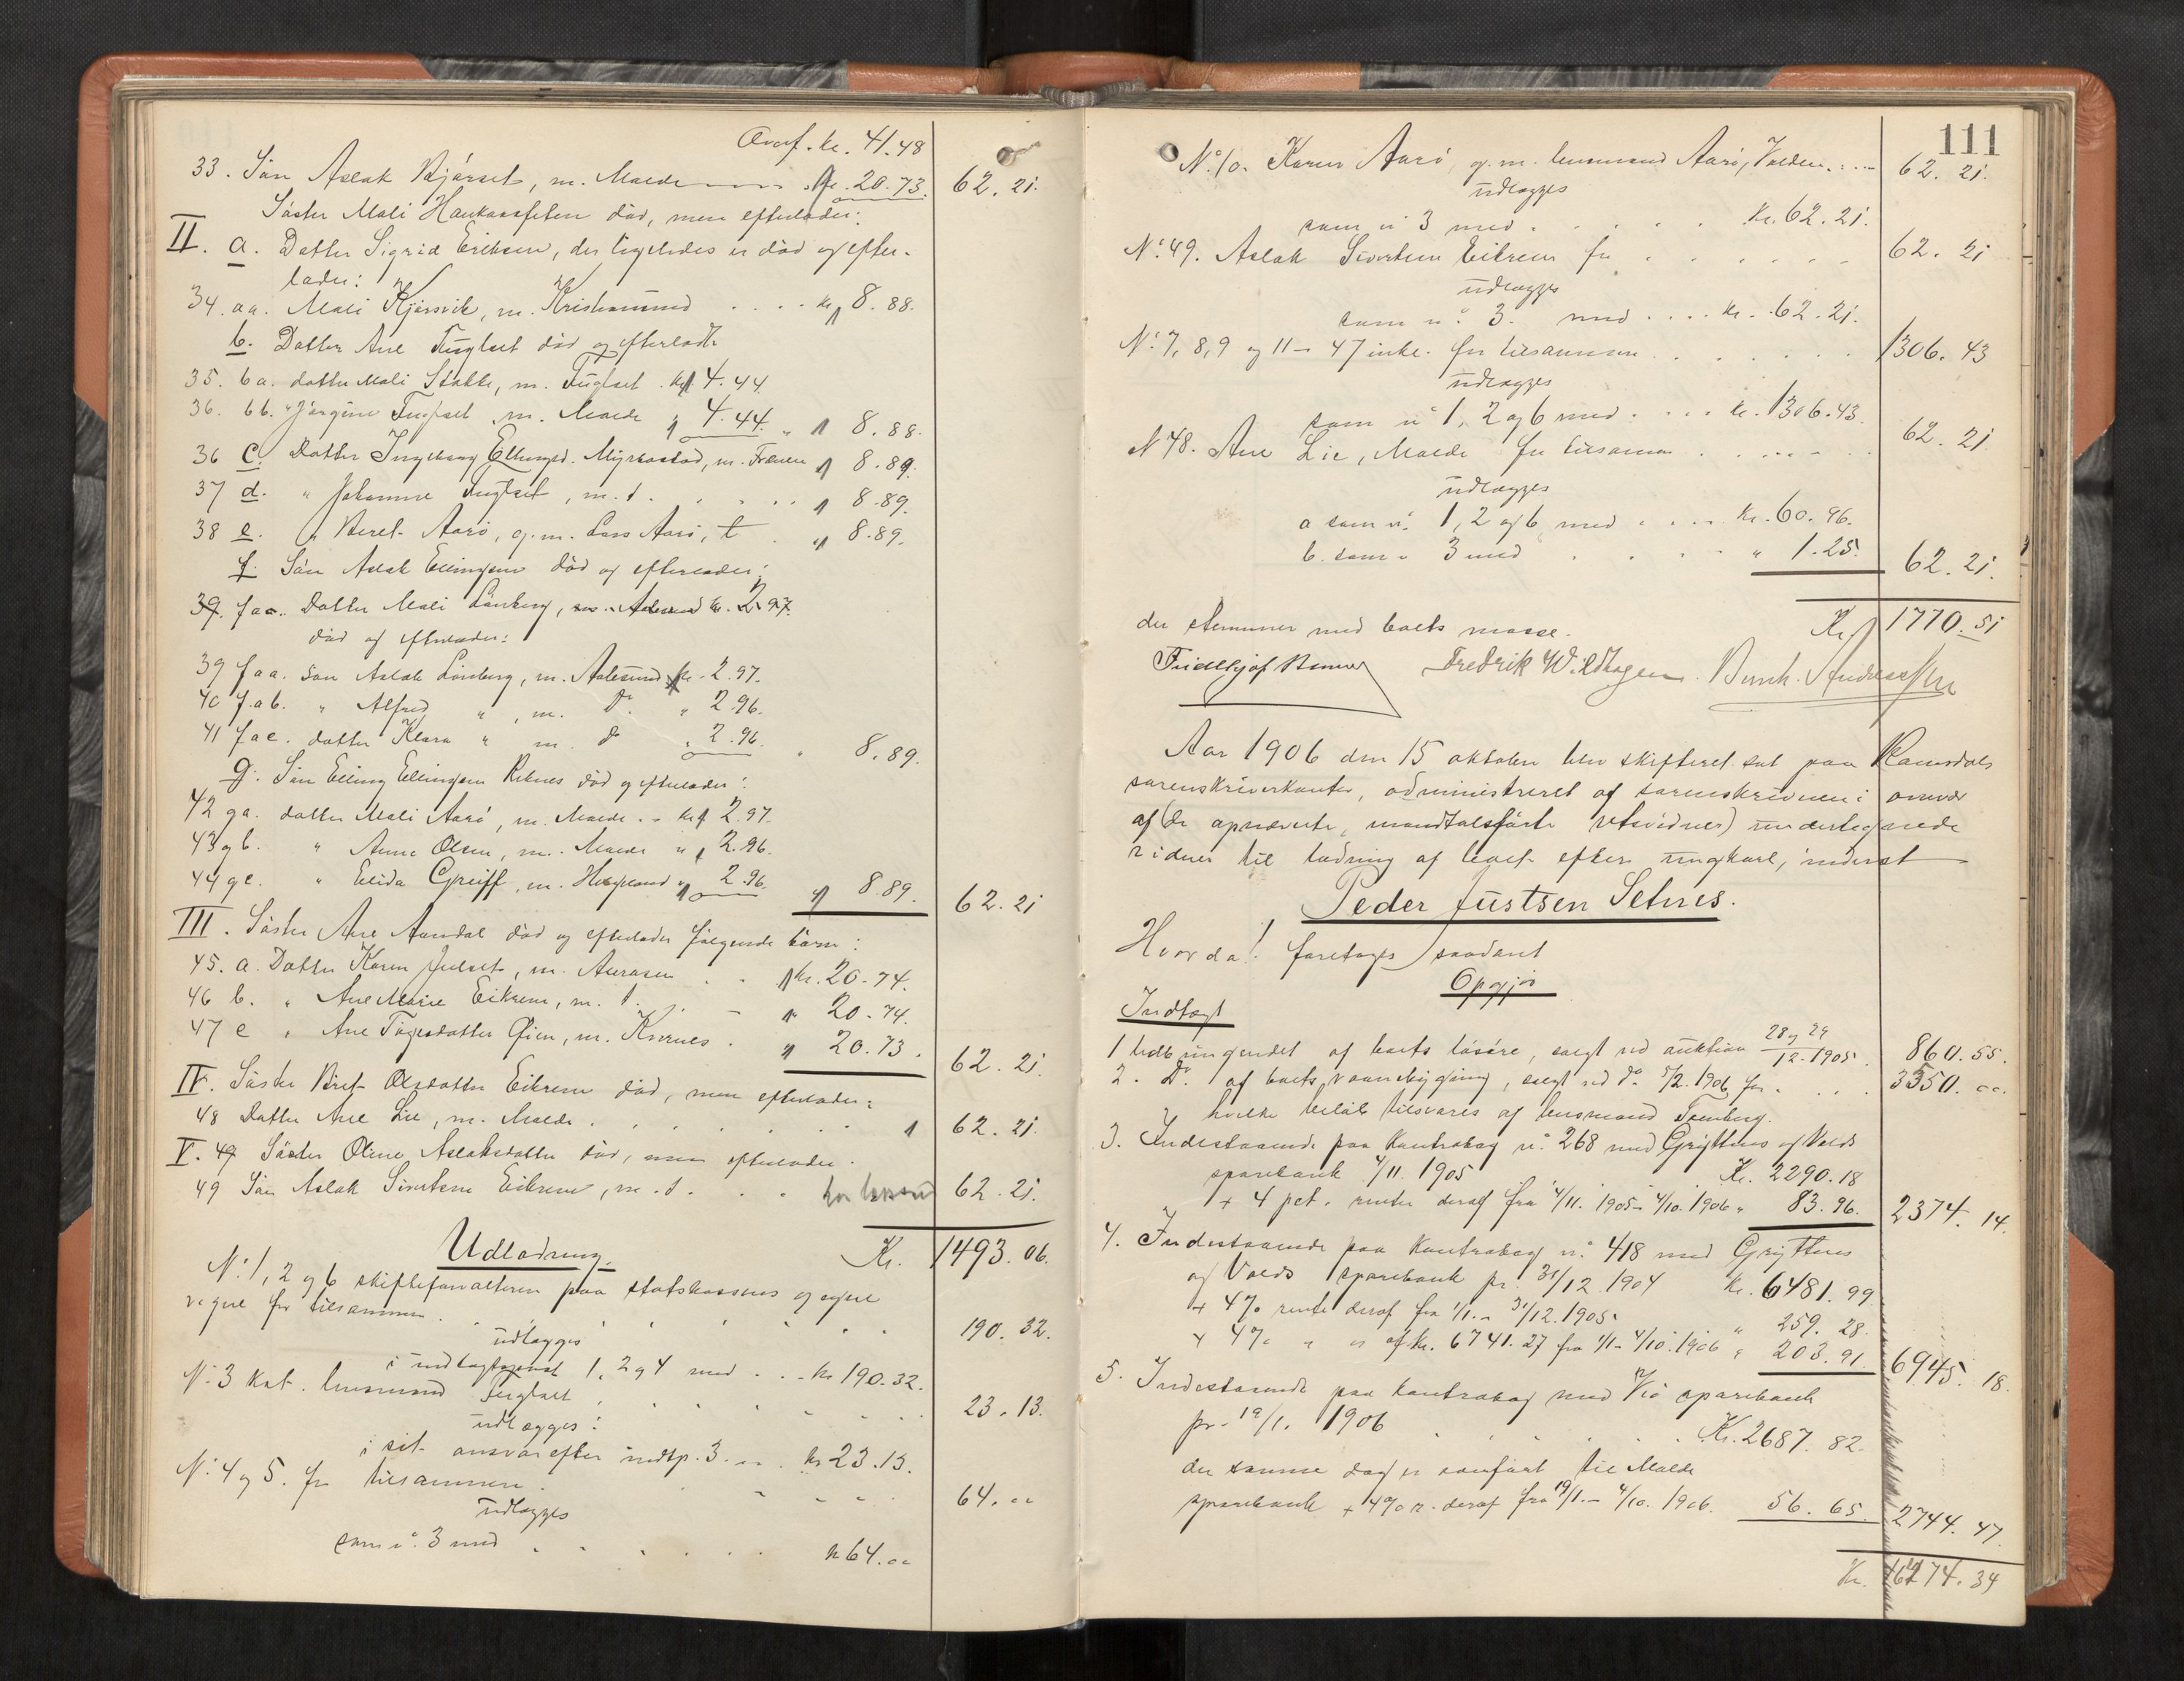 Overf. kr. 41.48
33. Søn Aslak Bjørset, m. Molde kr. 20.73. 62. 21.
II. Søster Mali Haukaasfeten død, men efterlader:
a. Datter Sigrid Eriksen, der ligeledes er død og efter-
lader:
34. aa. Mali Kjørsvik, m. Kristiansund . . . kr. 8.88.
b. Datter Ane Fuglset død og efterladt
35. ba. datter Mali Stokke, m. Fuglset . kr. 4.44
36. bb. " Jørgine Fuglset m. Molde " 4.44. " 8.88.
36 c. Datter Ingeborg Ellingsd. Myrbostad, m. Fræna " 8.89.
37 d. " Johanne Fuglset, m. t. . . . " 8.89.
38 e. " Beret Aarø, g. m. Lars Aarø, t . " 8.89.
f. Søn Aslak Ellingsen død og efterlader:
39. faa. Datter Mali Lønberg, m. Aalesund kr. 2.97.
død og efterlader:
39 faa. søn Aslak Lønberg, m. Aalesund kr. 2.97.
40 f.ab. " Alfred " , m. Do. " 2.96.
41 fac. datter Klara " m. do " 2.96. " 8.89.
g. Søn Elling Ellingsen Reknes død og efterlader:
42 ga. datter Mali Aarø, m. Molde . . kr. 2.97.
43 gb. " Anna Olsen, m. Molde " 2.96.
44 gc. " Elida Greiff, m. " 2.96. " 8.89. 62. 21
III. Søster Ane Aandal død og efterlader følgende børn:
45. a. Datter Karen Julset, m. Aurasen . . kr. 20.74.
46 b. " Ane Marie Eikrem, m. t. . - " 20.74.
47 c " Ane Tøgesdatter Øien, m. Kvernes . " 20.73. 62. 21.
IV. Søster Brit Olsdatter Eikrem død, men efterlader:
48 Datter Ane Lie, m. Molde . . . . . . 62. 21.
V. 49 Søster Oline Aslaksdatter død, men efterlader.
49 Søn Aslak Sivertsen Eikrem, m. t. . . . 62. 21.
Kr. 1493.06.
Udlodning.
No. 1, 2 og 6 skifteforvalteren paa statskassens og egne
vegne for tilsammen . . . . . . 190. 32.
udlægges
i indtægtspost 1, 2 og 4 med . . . kr 190.32.
No. 3 Kst. lensmand Fuglset . . . . . . 23. 13.
udlægges:
i sit ansvar efter indtp. 3. . . kr 23.13.
No. 4 og 5. for tilsammen . . . . . 64. 00
udlægges
som no. 3 med . . . . . . kr 64.00
111
No. 10. Karen Aarø, g. m. lensmand Aarø, Volden . . . 62. 21.
udlægges
som no 3 med . . . . . . Kr. 62. 21.
No. 49. Aslak Sivertsen Eikrem for . . . . . . 62. 21
udlægges
som no. 3. med . . . . kr. 62.21.
No. 7, 8, 9 og 11 - 47 inkl. for tilsammen . . . . . . 1306. 43
udlægges
som no 1, 2 og 6 med . . . . kr. 1306.43.
No 48. Ane Lie, Molde for tilsamman . . . . . . 62. 21.
udlægges
a som no. 1, 2 og 6 med . . . . Kr. 60. 96.
b. som " 3 med . . . . " 1.25. 62. 21.
Kr. 1770. 51
der stemmer med boets masse.
Fredrik Wildhagen.
Aar 1906 den 15 oktober blev skifteret sat paa Romsdals
sorenskriverkontor, administreret af sorenskriveren i overvær
af (de opnævnte, mandtalsførte retsvidner) undertegnede
vidner til lodning af boet efter ungkarl, inderst
Peder Justsen Setnes.
Hvorda! foretoges saadant
Opgjør
Indtægt
1 Udbringendet af boets løsøre, solgt ved auktion 28 og 29/12. 1905. 860. 55.
2. Do. af boets vaaningbygning, solgt ved do. 5/2. 1906 for . . . . 3350. 00.
hvilke beløb tilsvares af lensmand Tomberg.
3. Indestaaende paa kontrabog no. 268 med Gryttens og Volds
sparebank 4/11. 1905 . . . . . Kr. 2290.18
+ 4 pct. renter deraf fra 4/11. 1905 - 4/10. 1906 " 83. 96. 2374. 14.
4. Indestaaende paa kontrabog no. 418 med Gryttens
og Volds sparebank pr. 31/12 1904 Kr. 6481. 99
+ 4% rente deraf fra 1/1. - 31/12. 1905. " 259. 28.
+ 4% " " af kr. 6741.27 fra 1/1 - 4/10. 1906 " 203. 91. 6945. 18.
5. Indestaaende paa kontrabog med Veø sparebank
pr. 19/1. 1906 . . . . . Kr. 2687. 82.
der samme dag er overført til Molde
sparebank + 4% r. deraf fra 19/1. - 4/10. 1906. 56. 65. 2744. 47.
Kr. 16274. 34